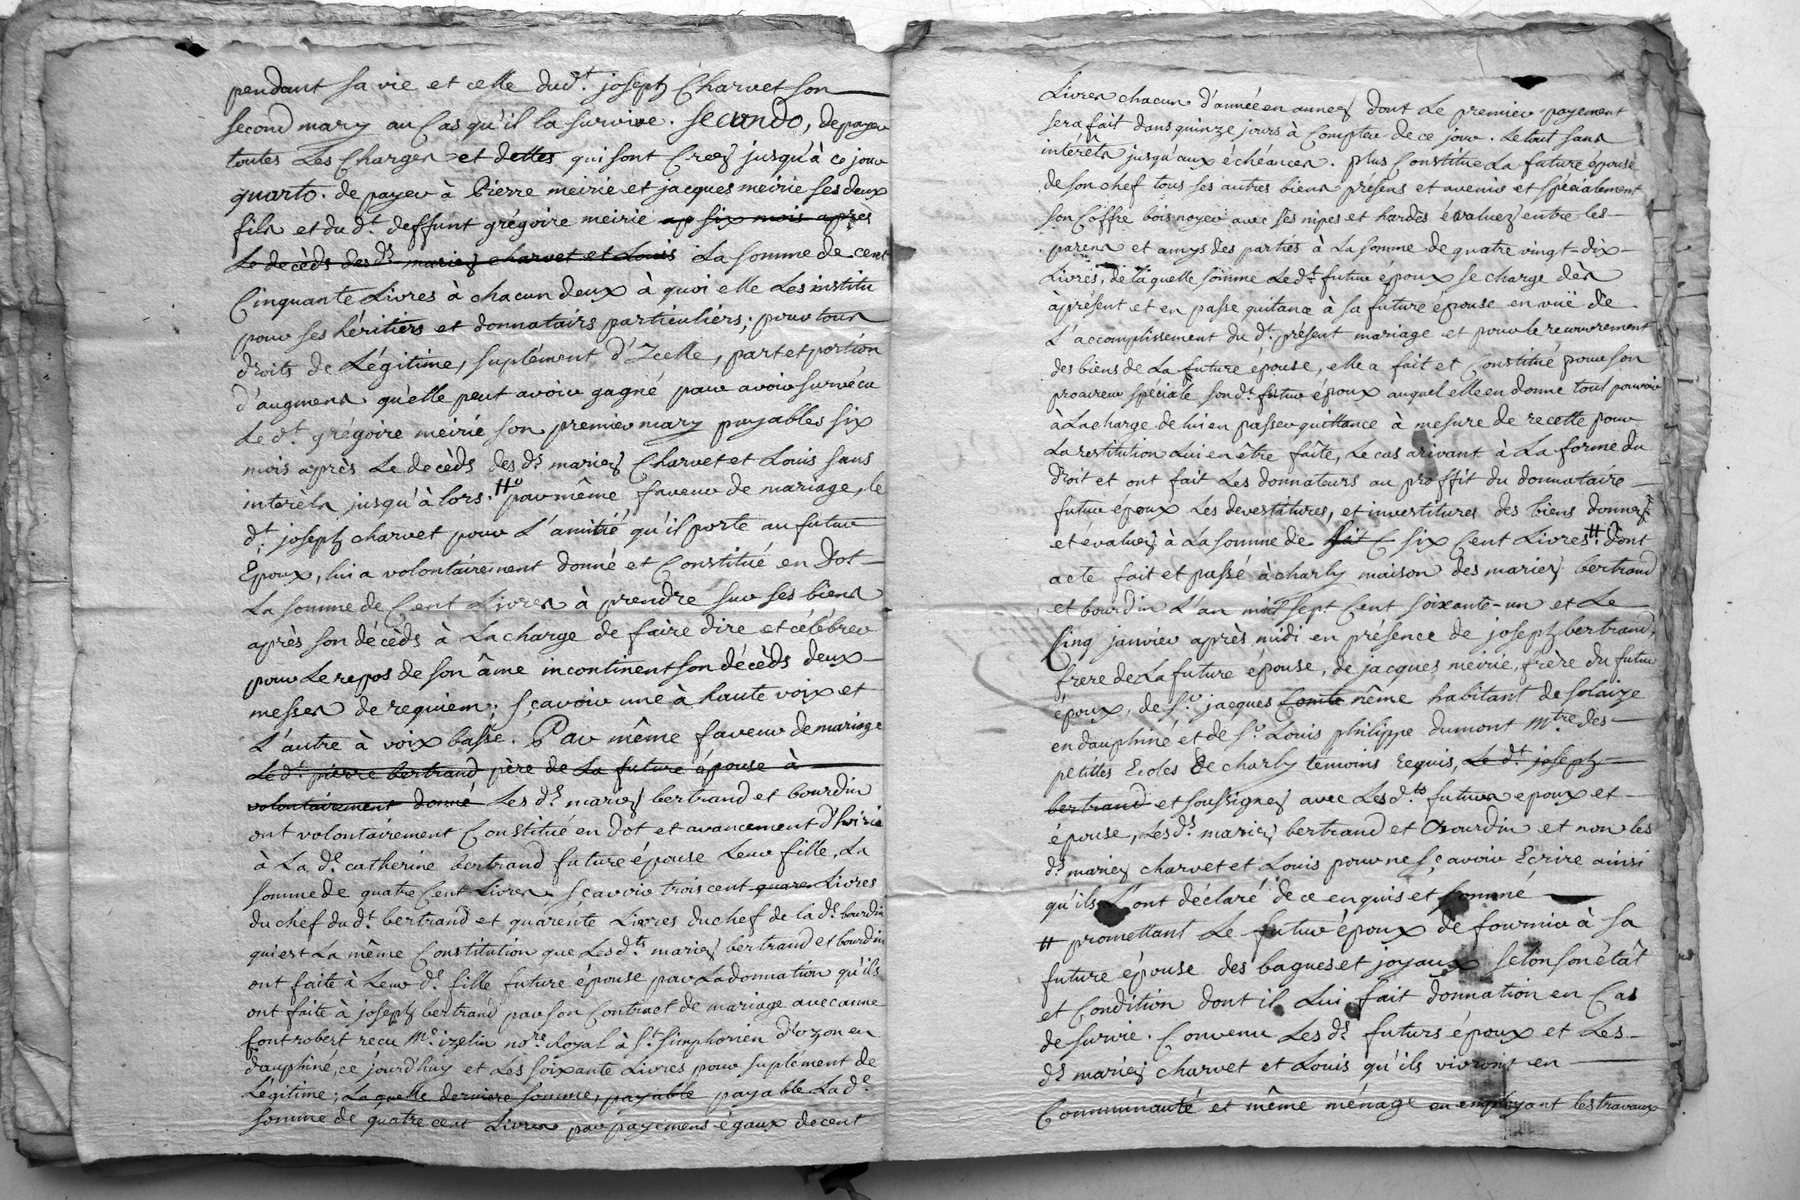 pendant sa vie et celle dud.t joseph Charvet son
second mary au Cas qu'il la survive. Secundo, de payer
toutes Les Charges et dettes qui sont Crees jusqu'à ce jour
quarto. de payer à Pierre meirie et jacques meirie ses deux
fils et du d.t deffunt grégoire meirie ap six mois après
Le decèds des d.s mariez charvet et Louis La somme de cent
Cinquante Livres à chacun deux à quoi elle Les institu
pour ses héritiers et donnatairs particuliers; pour tous
droits de Légitime, suplément d'Icelle, part et portion
d'augmens qu'elle peut avoir gagné pour avoir survécu
Le d.t grégoire meirié son premier mary payables six
mois après Le decèds des d.s mariez Charvet et Louis sans
interêts jusqu'à lors. # par même faveur de mariage, le
d.t joseph charvet pour L'amitié qu'il porte au futur
Epoux, lui a volontairement donné et Constitué en Dot
La somme de Cent Livres à prendre sur ses biens
après son décèds à La charge de faire dire et célébrer
pour Le repos de son âme incontinent son décèds deux
messes de requiem; sçavoir une à haute voix et
L'autre à voix basse. Par même faveur de mariage
Le d.t pierre bertrand père de La future épouse à
volontairement donné Les d.s mariez bertrand et bourdin
ont volontairement Constitué en dot et avancement d'hoirie
à La d.e catherine bertrand future épouse Leur fille, La
somme de quatre Cent Livres, sçavoir trois cent quare Livres
du chef du d.t bertrand et quarente Livres du chef de la d.e bourdin
qui est La même Constitution que Les d.ts mariez bertrand et bourdin
ont faite à Leur d.e fille future épouse par La donnation qu'ils
ont faite à joseph bertrand par son Contract de mariage avec anne
font robert recu M.e izelin no.re Royal à S.t Simphorien d'ozon en
Dauphiné, ce jourd'huy et Les soixante Livres pour suplément de
Légitime; Laquelle derniere somme, payable payable La d.e
somme de quatre cent Livres par payemens égaux de cent
Livres chacun d'année en annez dont Le premier payement
sera fait dans quinze jours à Compter de ce jour. Le tout sans
interêts jusqu'aux échéances. plus Constitue La future épouse
de son chef tous ses autres biens présens et avenir et spécialement
son Coffre bois noyer avec ses nipes et hardes évaluez entre les
parens et amys des parties à La somme de quatre vingt-dix
Livres, de laquelle somme Le d.t futur époux se charge dès
àprésent et en passe quitance à sa future épouse en vuë de
L'accomplissement du d.t présent mariage et pour le recouvrement
des biens de La future épouse, elle a fait et Constitué pour son
procureur spéciale son d.t futur époux auquel elle en donne tout pouvoir
à La charge de lui en passer quittance à mesure de recette pour
La restitution Lui en être faite, Le cas arivant à La forme du
Droit et ont fait Les donnateurs au proffit du donnataire
futur époux Les devestitures, et investitures des biens donnez
et evaluez à La somme de six Cent Livres # Dont
acte fait et passé à charly maison des mariez bertrand
et bourdin L'an mil sept Cent soixante-un et Le
Cinq janvier après midi en présence de joseph bertrand
frere de La future épouse, de jacques meirie, frère du futur
époux, de S.r jacques Comte même habitant de solaize
en dauphiné et de S.r Louis philippe dumont M.tre des
petittes Ecoles de charly témoins Requis, Le d.t joseph
bertrand et soussignez avec Les d.ts futurs epoux et
épouse, Les d.s mariez bertrand et Bourdin et non les
d.s mariez charvet et Louis pour ne sçavoir Ecrire ainsi
qu'ils L'ont déclaré de ce enquis et sommé
# promettant Le futur époux de fournir à sa
future épouse des bagues et joyaux selon son êtât
et Condition dont il Lui fait donnation en Cas
de survie. Convenu Les d.s futurs époux et Les
d.s mariez charvet et Louis qu'ils vivront en
Communauté et même ménage en employant les travaux